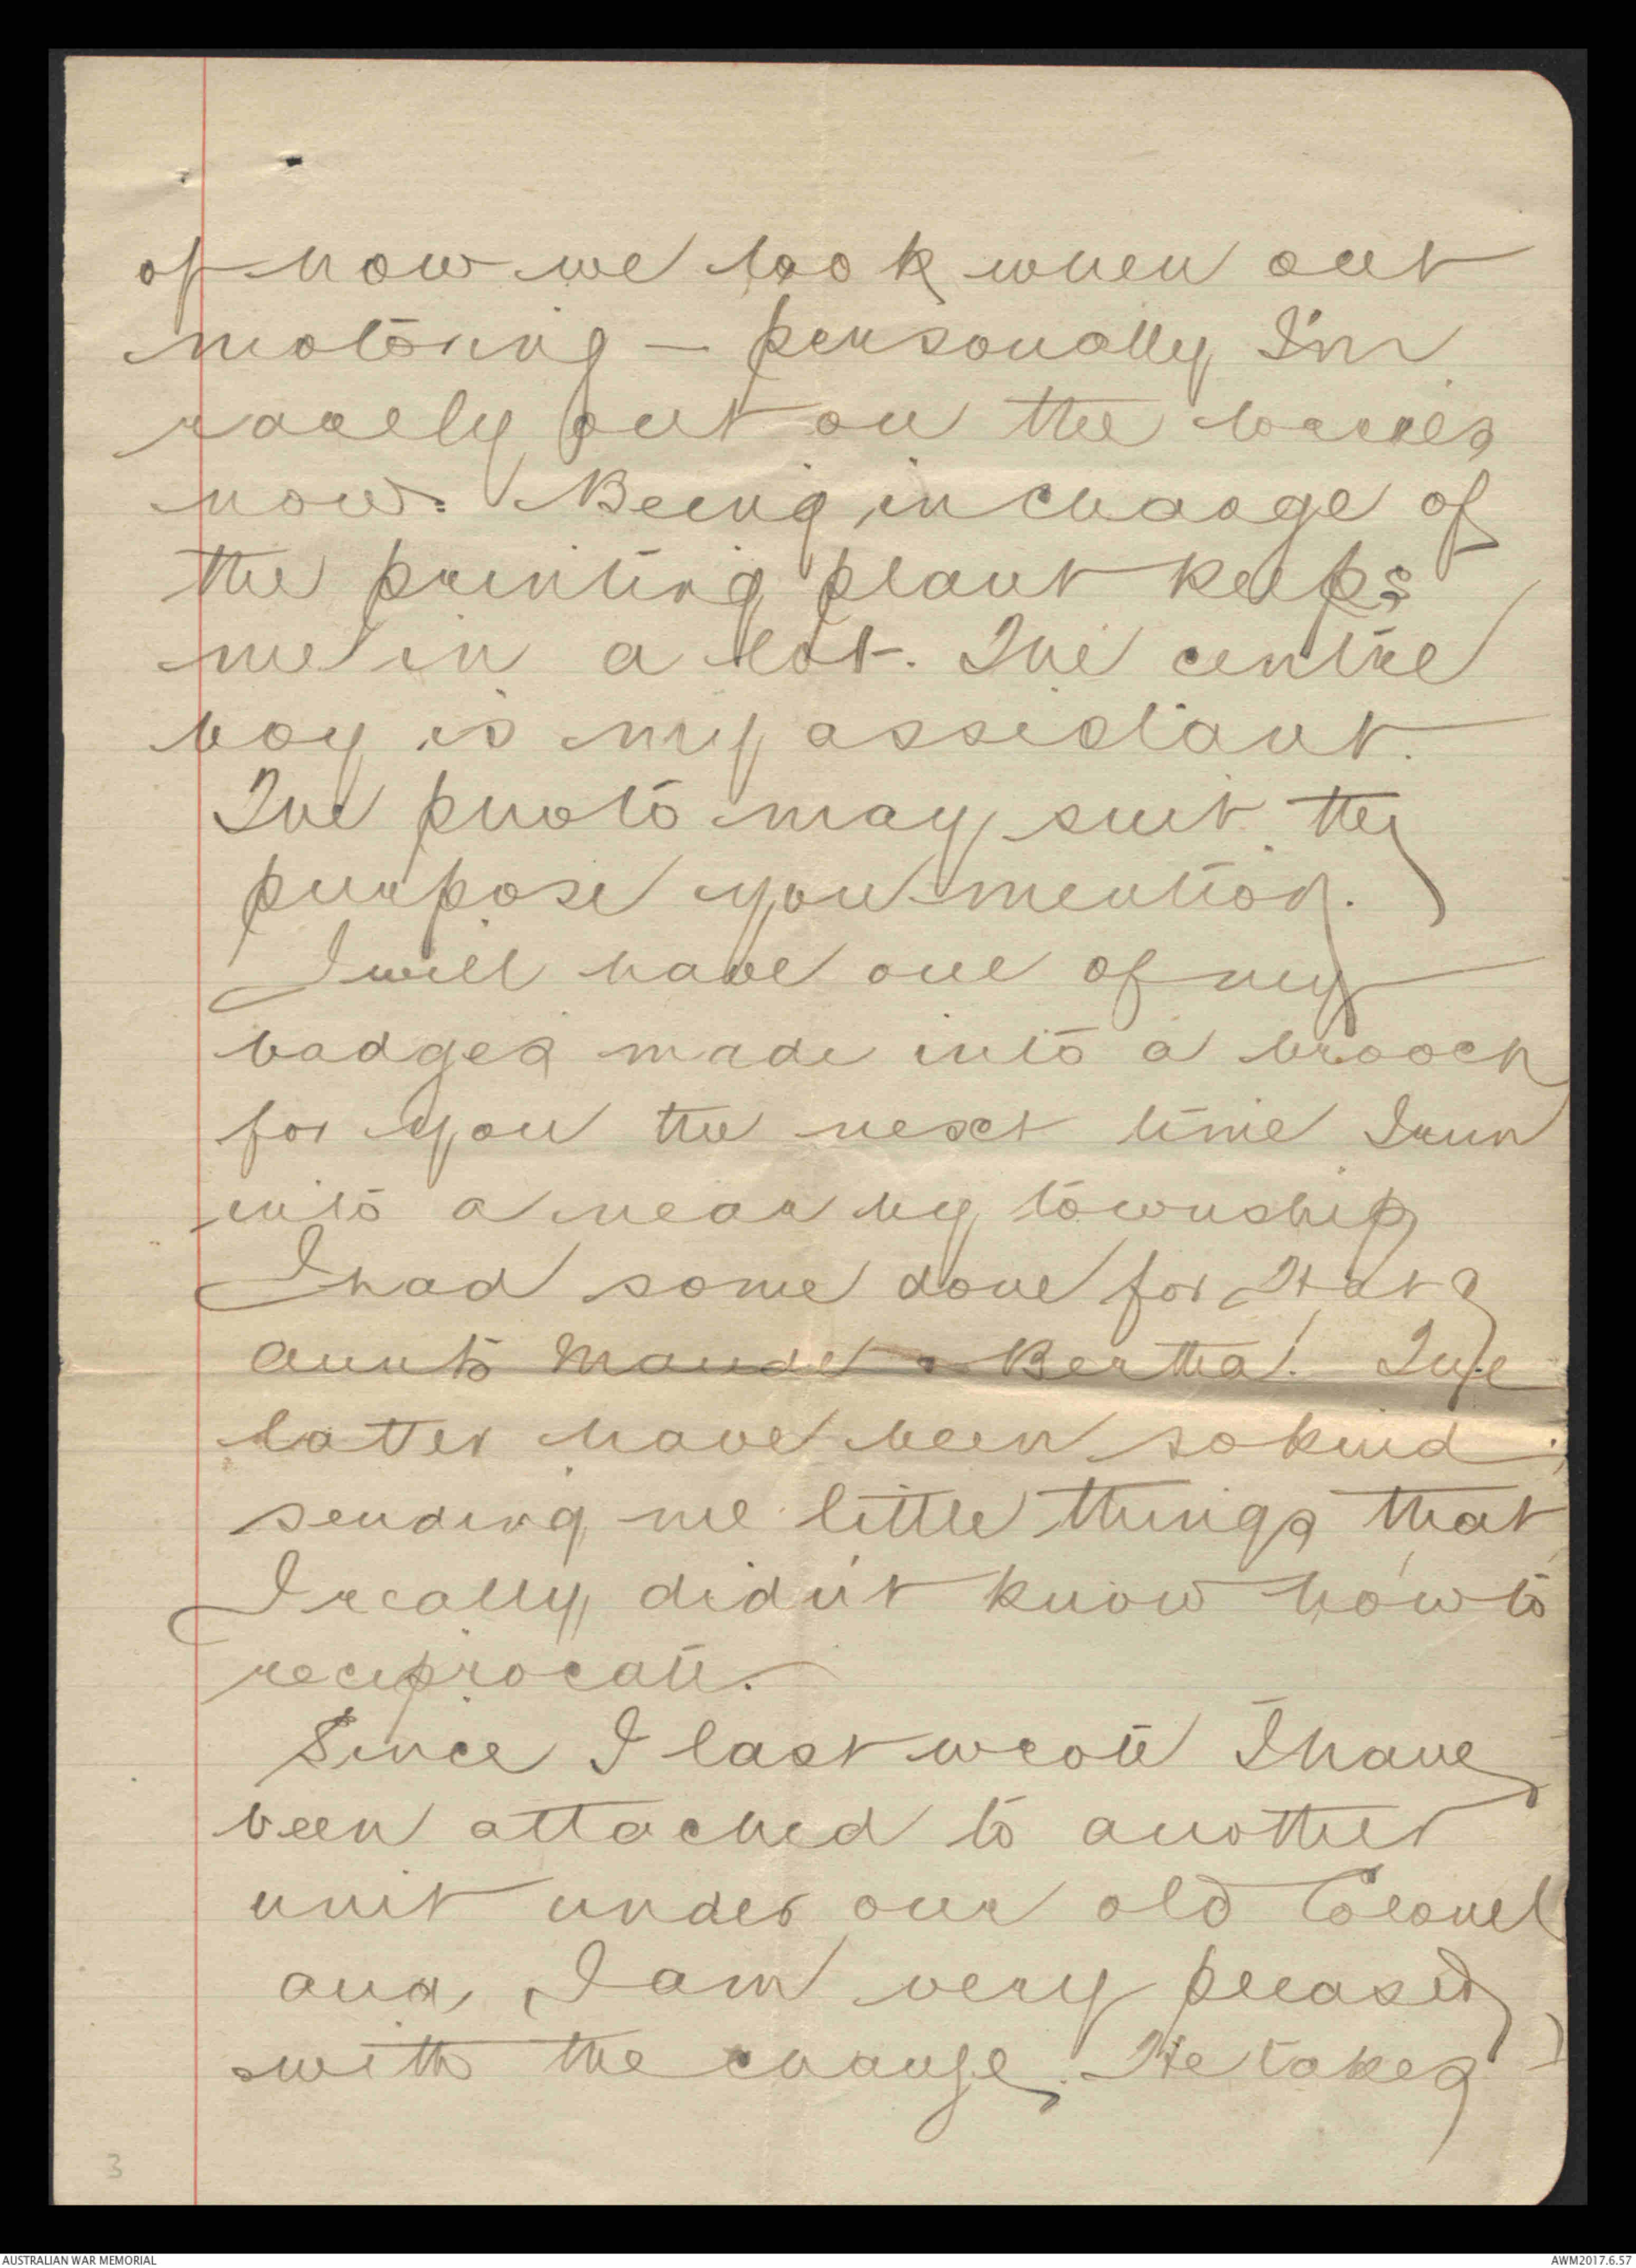 of how we look when out
motoring – personally I'm
rarely out on the
now. Being in charge of
the printing plant keeps
me in a lot. The centre
boy is my assistant.
The photo may suit the
purpose you mention.
I will have one of my
badges made into a brooch
for you the next time I run
into a near by township
I had some done for
aunts Maude & Bertha. The
latter have been so kind
sending me little things that
I really didn't know how to
reciprocate.
Since I last wrote I have
been attached to another
unit under our old Colonel
and, I am very pleased
with the change. He takes
3
AUSTRALIAN WAR MEMORIAL
AWM2017.6.57